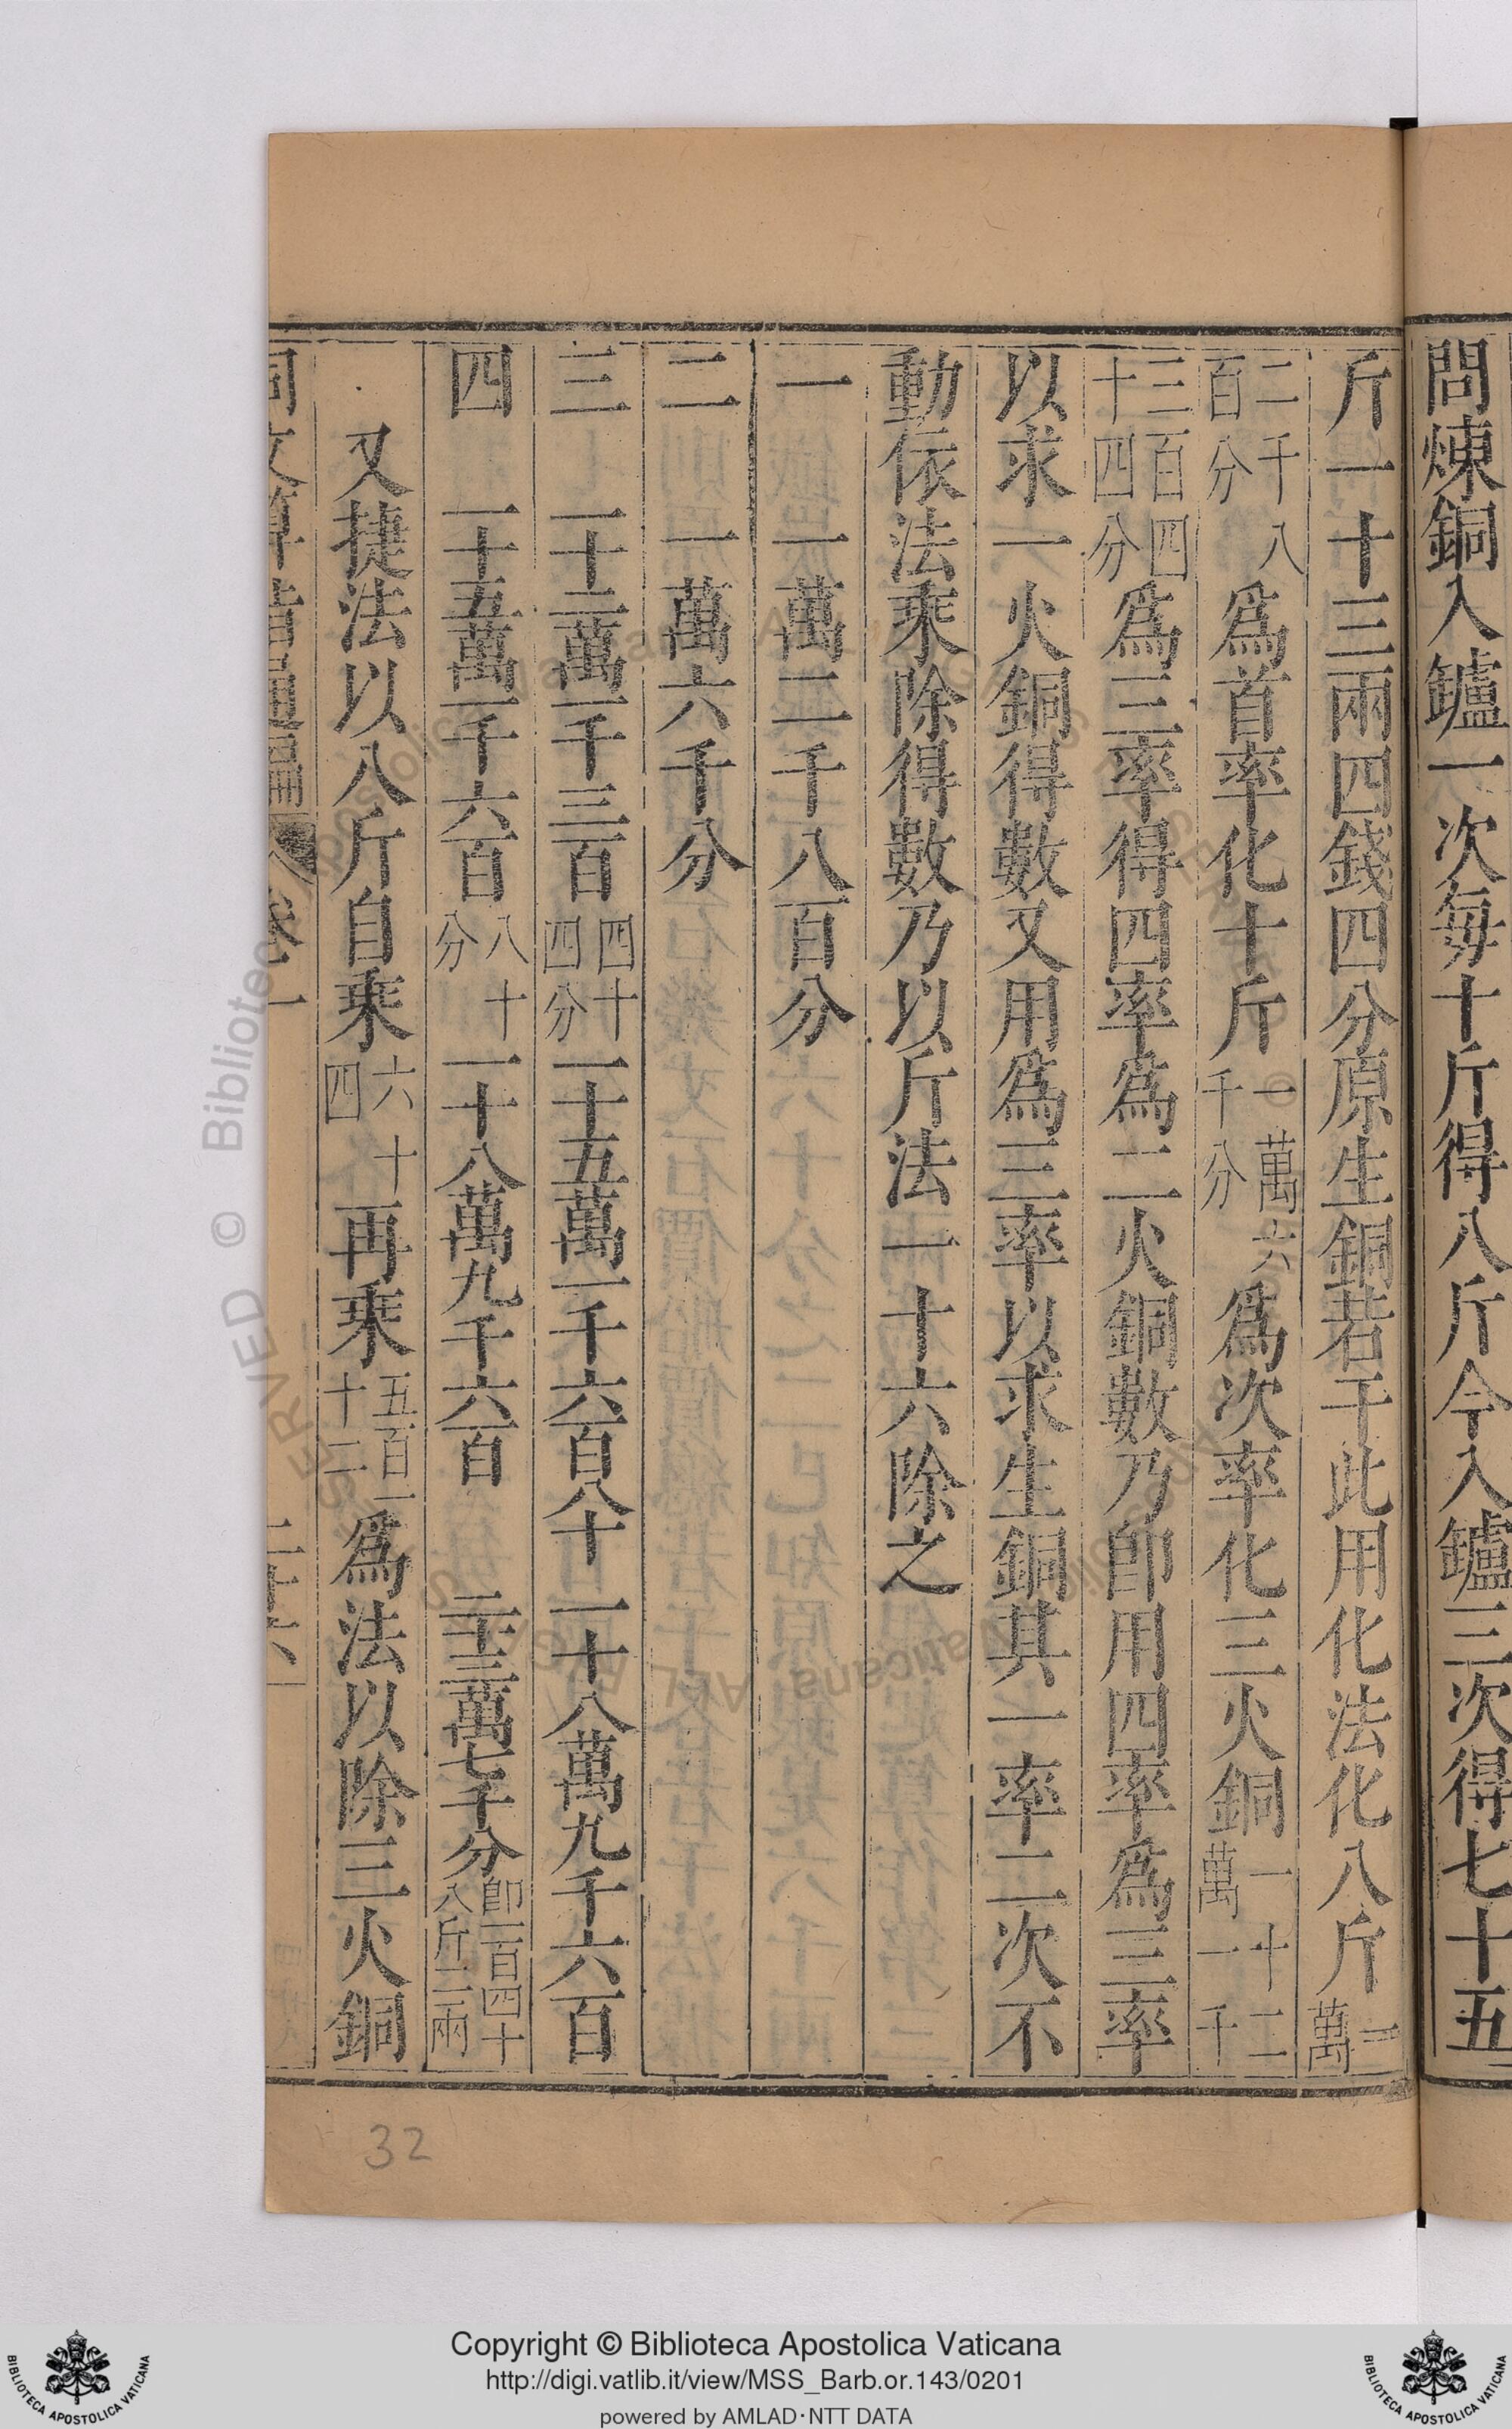 問煉銅入鑪一次每十斤得八斤今入鑪三次得七十五
斤一十三兩四錢四分原生銅若干此用化法化八斤一萬
二千八百分為首率化十斤一萬六千分為次率化三火銅一十二萬一千
三百四十四分為三率得四率為二火銅數乃卽用四率為三率
以求一火銅得數又用為三率以求生銅其一率二次不
動依法乘除得數乃以斤法一十六除之
一 一萬二千八百分
二 一萬六千分
三 一十二萬一千三百四十四分 一十五萬一千六百八十 一十八萬九千六百
四 一十五萬一千六百八十分 一十八萬九千六百 二十三萬七千分卽一百四十八斤二兩
又捷法以八斤自乘六十四再乘五百一十二為法以除三火銅
同文算指通編 卷一 二十六
32
Copyright © Biblioteca Apostolica Vaticana
http://digi.vatlib.it/view/MSS_Barb.or.143/0201
powered by AMLAD·NTT DATA
BIBLIOTECA APOSTOLICA VATICANA
BIBLIOTECA APOSTOLICA VATICANA